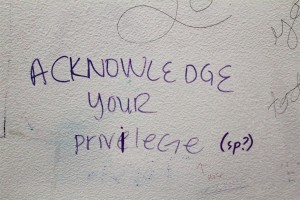 ACKNOWLEDGE
YOUR
PRIVILEGE (sp?)